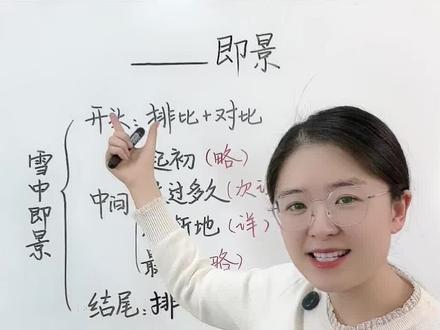 ____即景
雪中即景
开头:排比+对比
中间
起初(略)
过多久(次
地(详)
最 略)
结尾:排